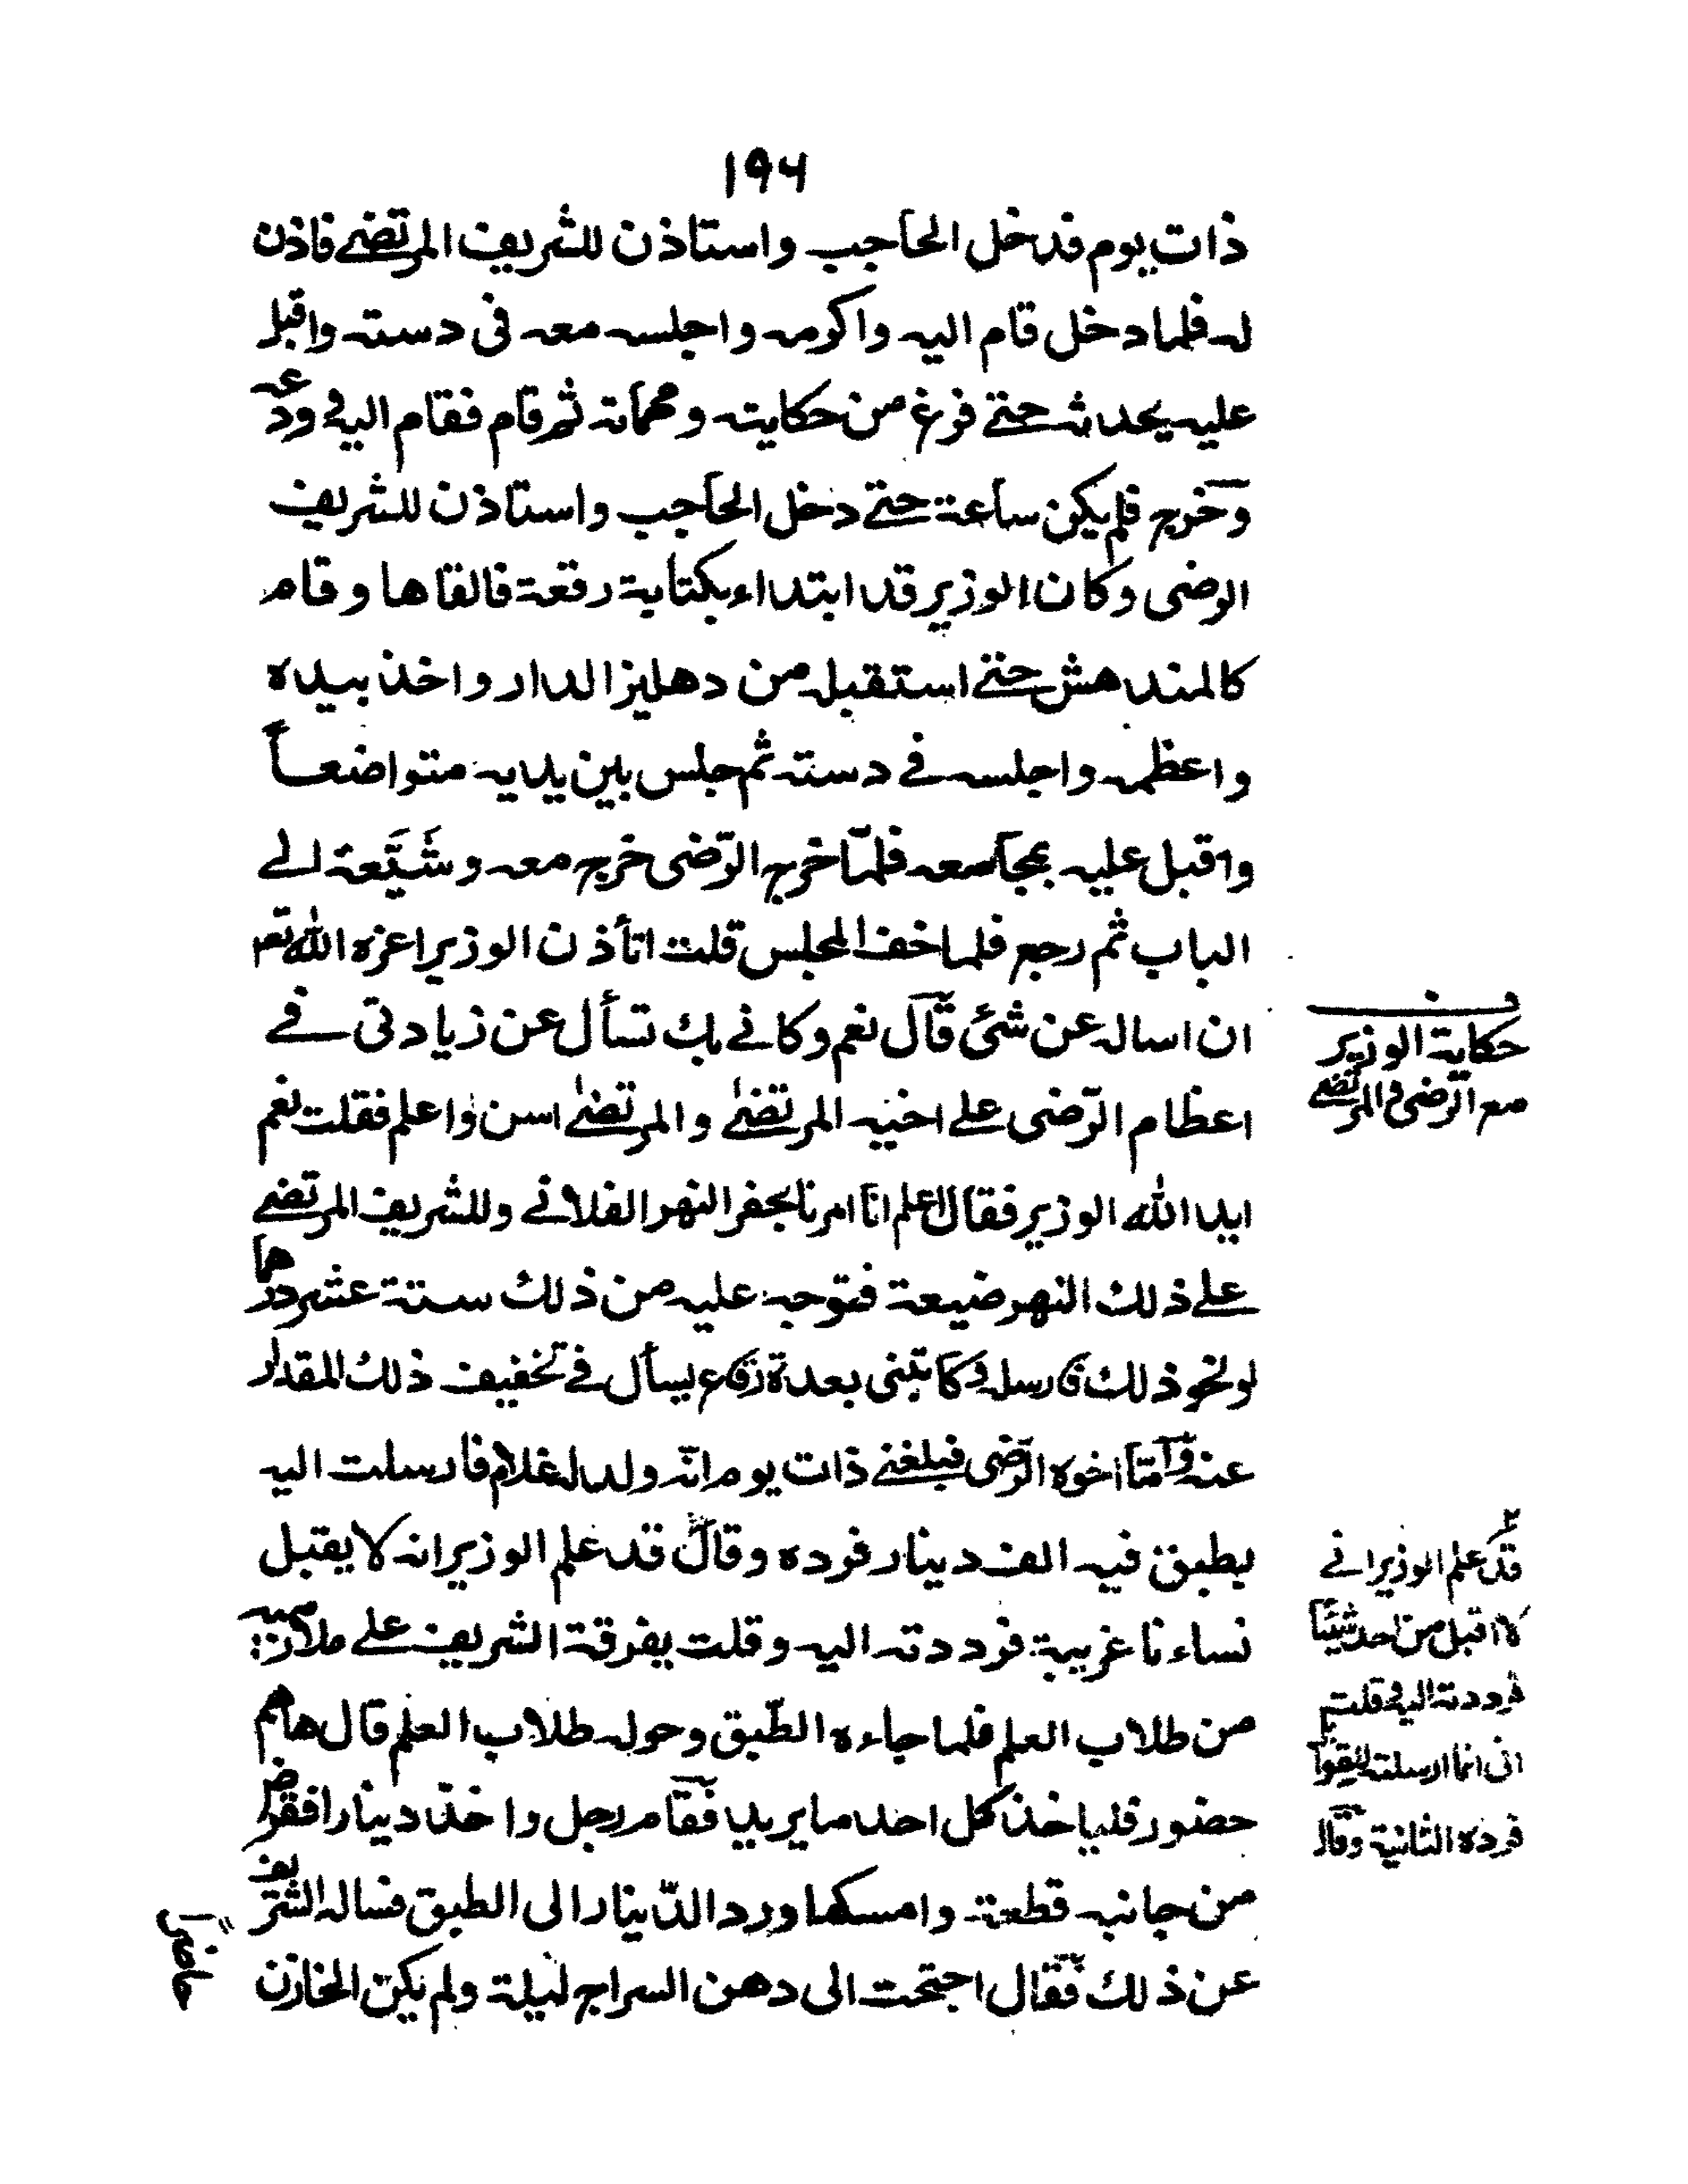 ۱۹۶
ذات يوم فدخل الحاجب واستاذن للشريف المرتضے فاذن
له فلما دخل قام اليه واكرمه واجلسه معه فى دسته واقبل
عليه يحدثه حتے فرغ من حكايته ومهماته ثم قام فقام اليه و ودعه
وخرج فلم يكن ساعة حتے دخل الحاجب واستاذن للشريف
الرضى وكان الوزير قد ابتداء بكتابة رقعة فالقاها وقام
كالمندهش حتے استقبله من دهليز الدار واخذ بيده
واعظمه واجلسه فے دسته ثم جلس بين يديه متواضعاً
واقبل عليه بمجامعه فلمّا خرج الرّضى خرج معه وشَيَّعهٗ الے
الباب ثم رجع فلما خف المجلس قلت اتأذن الوزير اعزه الله تعم
ان اساله عن شئ قال نعم وكانے بك تسأل عن زيادتى فے
اعظام الرّضى علے اخيه المرتضےٰ والمرتضےٰ اسن واعلم فقلت نعم
ايد الله الوزير فقال اعلم انا امرنا بحفر النهر الفلانے وللشريف المرتضے
علے ذلك النهر ضيعة فتوجه عليه من ذلك ستة عشر درهما
او نحو ذلك فارسل و كاتبنى بعدة رقاع يسأل فے تخفيف ذلك المقدار
عنه وامّا اخوه الرّضى فبلغنے ذات يوم انّه ولد له غلام فارسلت اليه
بطبق فيه الف دينار فرده وقال قد علم الوزير انه لا يقبل
نساءنا غريبة فرددته اليه وقلت يفرقة الشريف علے ملازميه
من طلاب العلم فلما جاءه الطّبق وحوله طلاب العلم قال هاهم
حضور فلياخذ كل احد ما يريد فقام رجل واخذ دينارا فقرض
من جانبه قطعة وامسكها ورد الدّينار الى الطبق فساله الشريف
عن ذلك فقال احتجت الى دهن السراج ليلة ولم يكن الخازن
حاضراً
حكاية الوزير
مع الرّضى و المرتضے
قد علم الوزير انے
لا اقبل من احد شيئاً
فرددته اليه و قلت
انى انما ارسلته للقوابل
فرده الثانية وقال